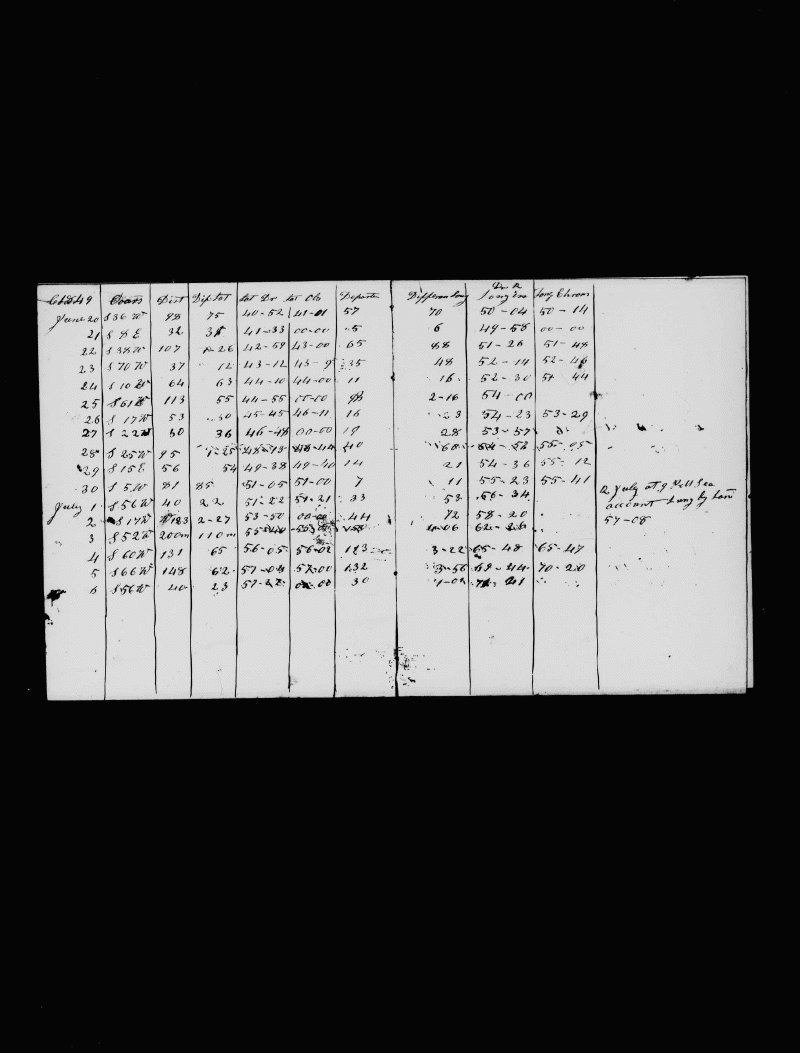 1849 Cours Dist Dip Lat Lat Dr Lat Ob Departu Differen Long Dr R Long in Long Chron
June 20 S 36 W 98 75 40-52 41-01 57 70 50-04 50-14
21 S 8 E 32 41-33 00-00 5 6 49-58 00-00
22 S 38 W 107 26 42-59 43-00 65 88 51-26 51-48
23 S 70 W 37 12 43-12 43-9 35 48 52-14 52-46
24 S 10 W 64 63 44-10 44-00 11 16 52-30 44
25 S 61 W 113 55 44-55 00-00 98 2-16 54-00
26 S 17 W 53 50 45-45 46-11 16 23 54-23 53-29
27 S 22 W 50 36 46-48 00-00 19 28 53-57
28 S 25 W 95 1-25 40 60 55-05
29 S 15 E 56 54 49-38 49-40 14 21 54-36 55-12
30 S 5 W 81 85 51-05 51-00 7 11 55-23 55-41
July 1 S 56 W 40 22 51-22 51-21 33 53 56-34
2 S 17 W 123 2-27 53-50 00-00 44 72 58-20
3 S 52 W 200m 110m 4-06
4 S 60 W 131 65 56-05 56-02 113 3-22 65-48 65-47
5 S 66 W 148 62 57-04 57-00 132 3-56 69-44 70-20
6 S 56 W 40 23 57-22 00-00 30 1-01 41
2 July at 9 Sea
account Long by
57-08